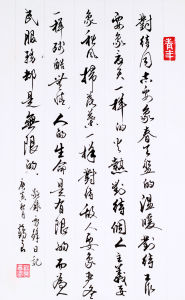 對待同志要象春天般的溫暖對待工作
要象夏天一样的火熱對待個人主義要
象秋風掃落葉一樣對待敵人要象严冬
一樣殘酷無情人的生命是有限的而为人
民服務却是無限的
雷鋒日記
庚寅